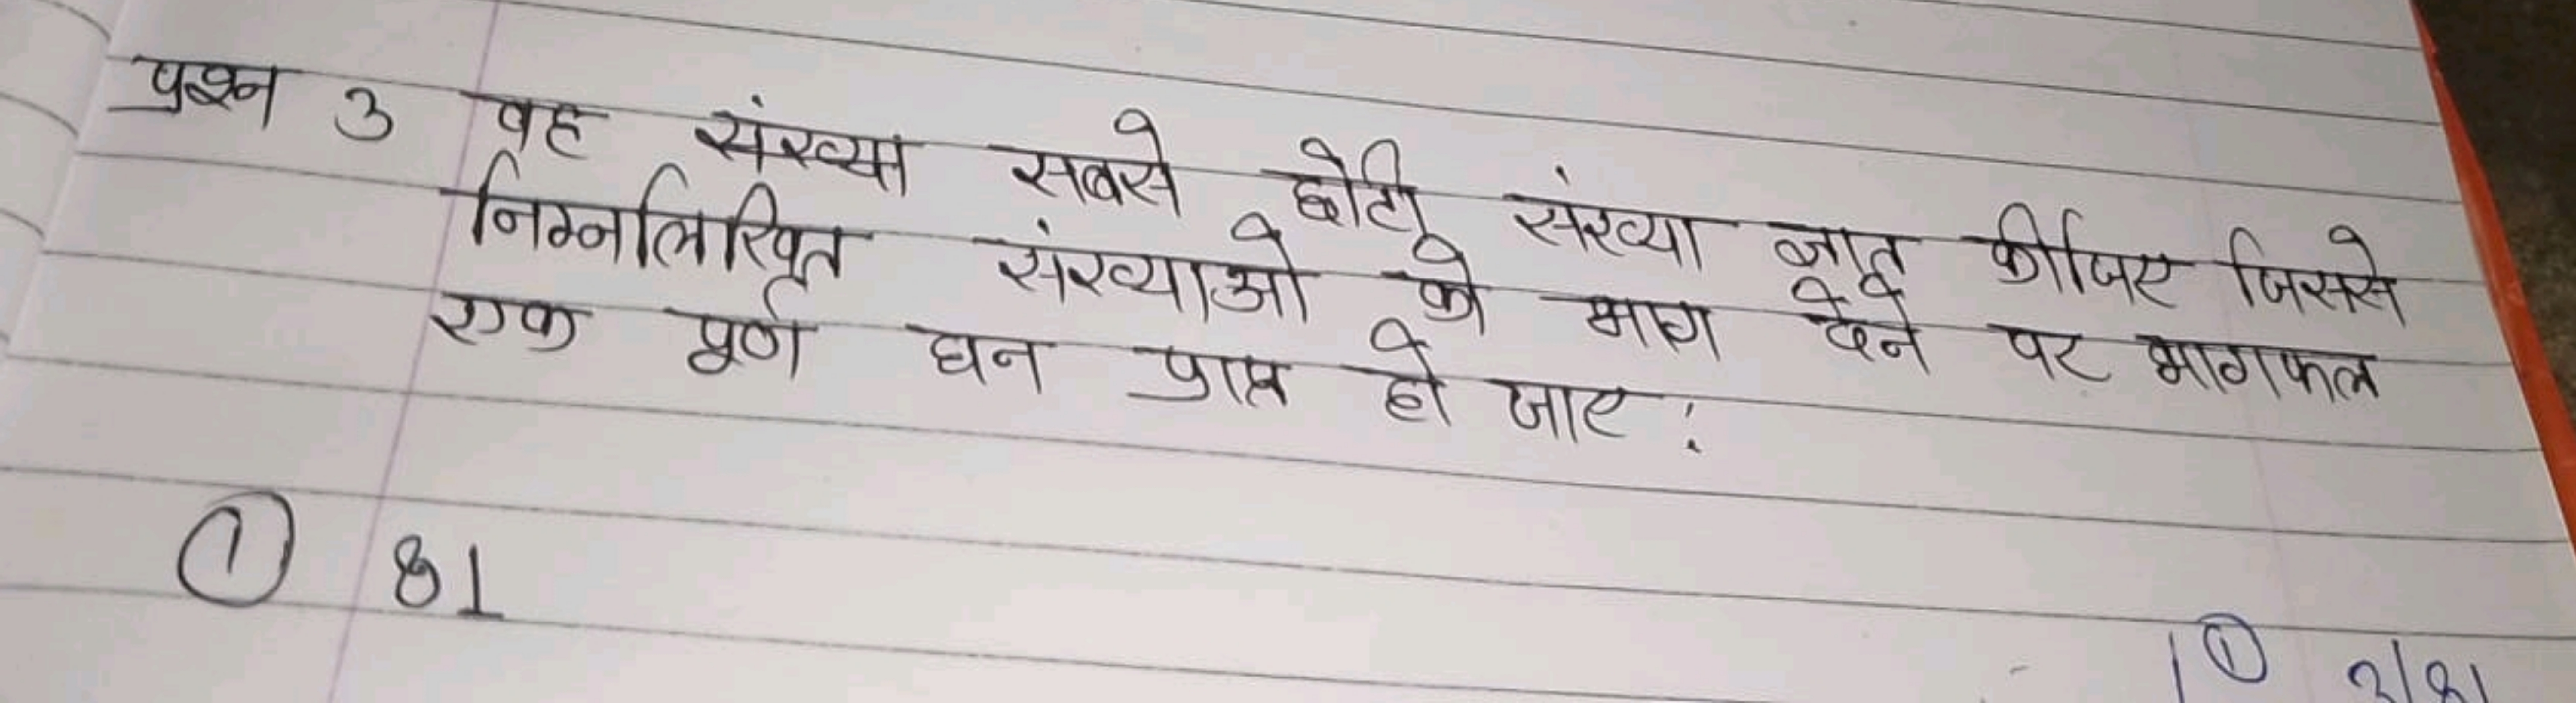 प्रश्न 3 वह संख्या सबसे छोटी संख्या ज्ञात कीजिए जिससे
निम्नलिखित संख्याओ को भाग देने पर भागफल
एक पूर्ण घन प्राप्त हो जाए :
① 81
① 3/81